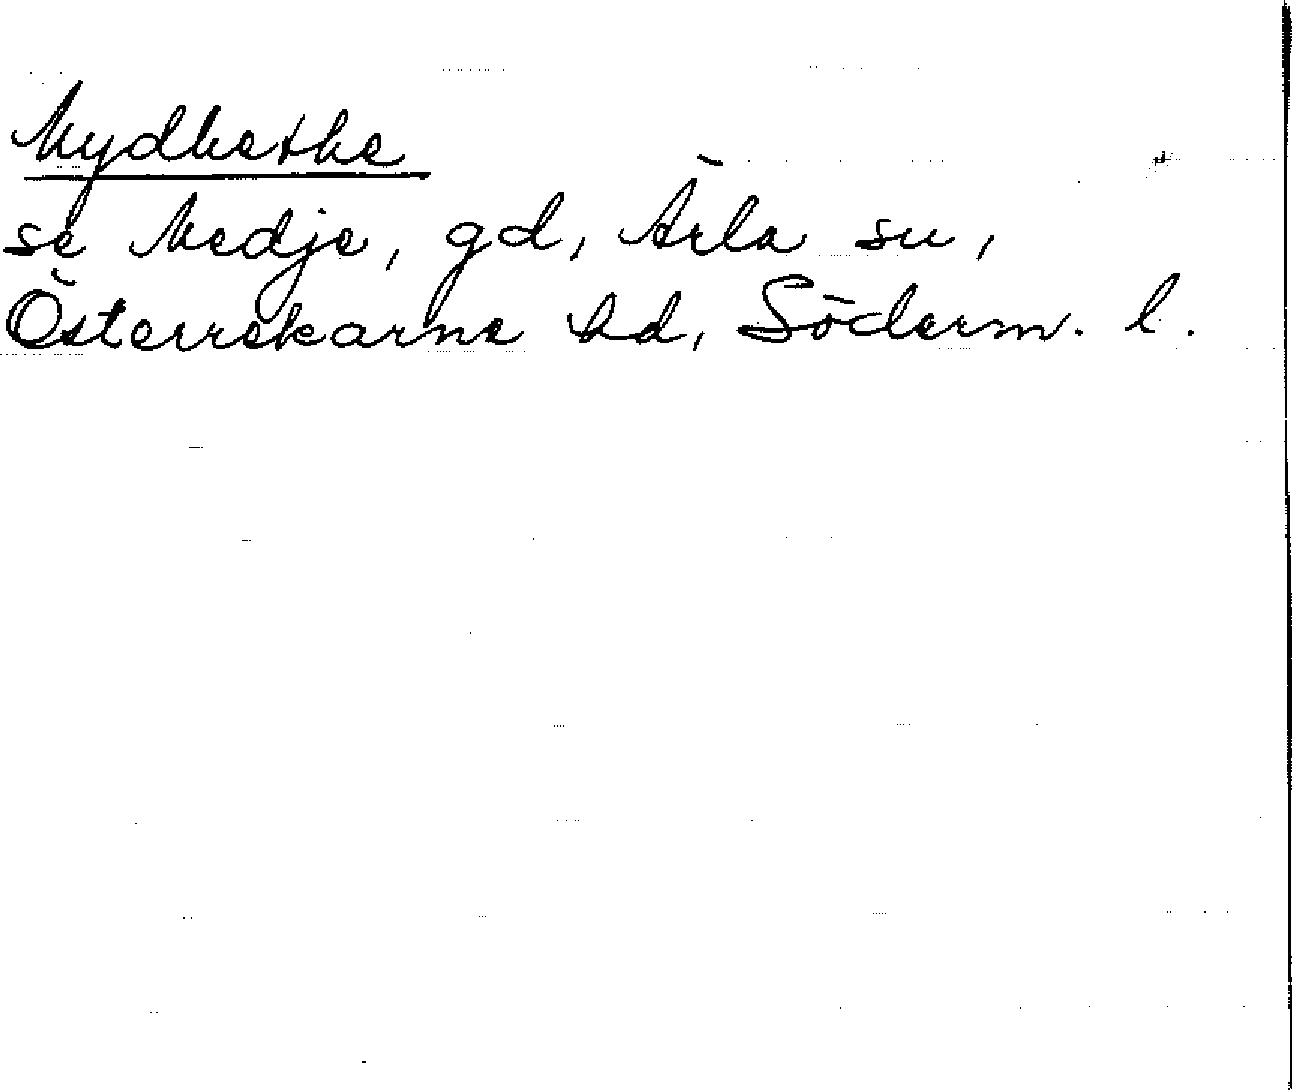 Mydhethe
se Medje, gd, Ärla sn,
Österrekarne hd, Söderm. l.